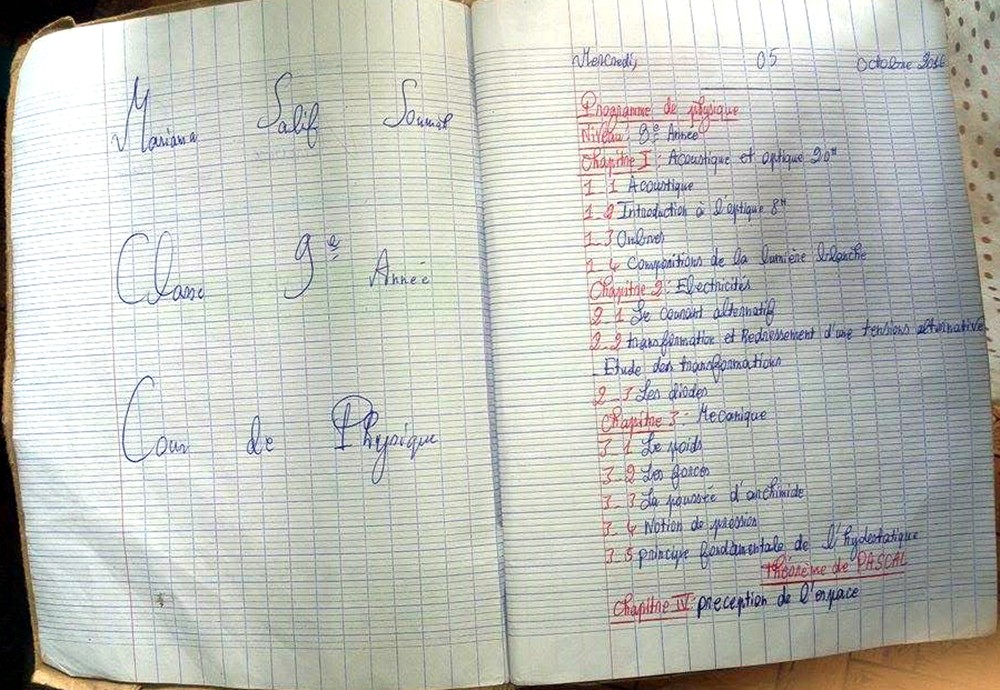 Mariama Salif Soumah
Classe 9e Année
Cour de Physique
Mercredi, 05 Octobre 2016
Programme de physique
Niveau: 9e Année
Chapitre I: Acoustique et optique 20H
1_1 Acoustique
1_2 Introduction à l'optique 8H
1_3 Ombres
1_4 Compositions de la lumière blanche
Chapitre 2: Electricités
2_1 Le courant alternatif
2_2 transformation et Redressement d'une tensions alternative
_ Etude des transformations
2_3 Les diodes
Chapitre 3: Mecanique
3_1 Le poids
3_2 Les forces
3_3 La poussée d'archimide
3_4 Notion de pression
3_5 principe fondamentale de l'hydestatique
théorème de PASCAL
Chapitre IV: preception de l'espace